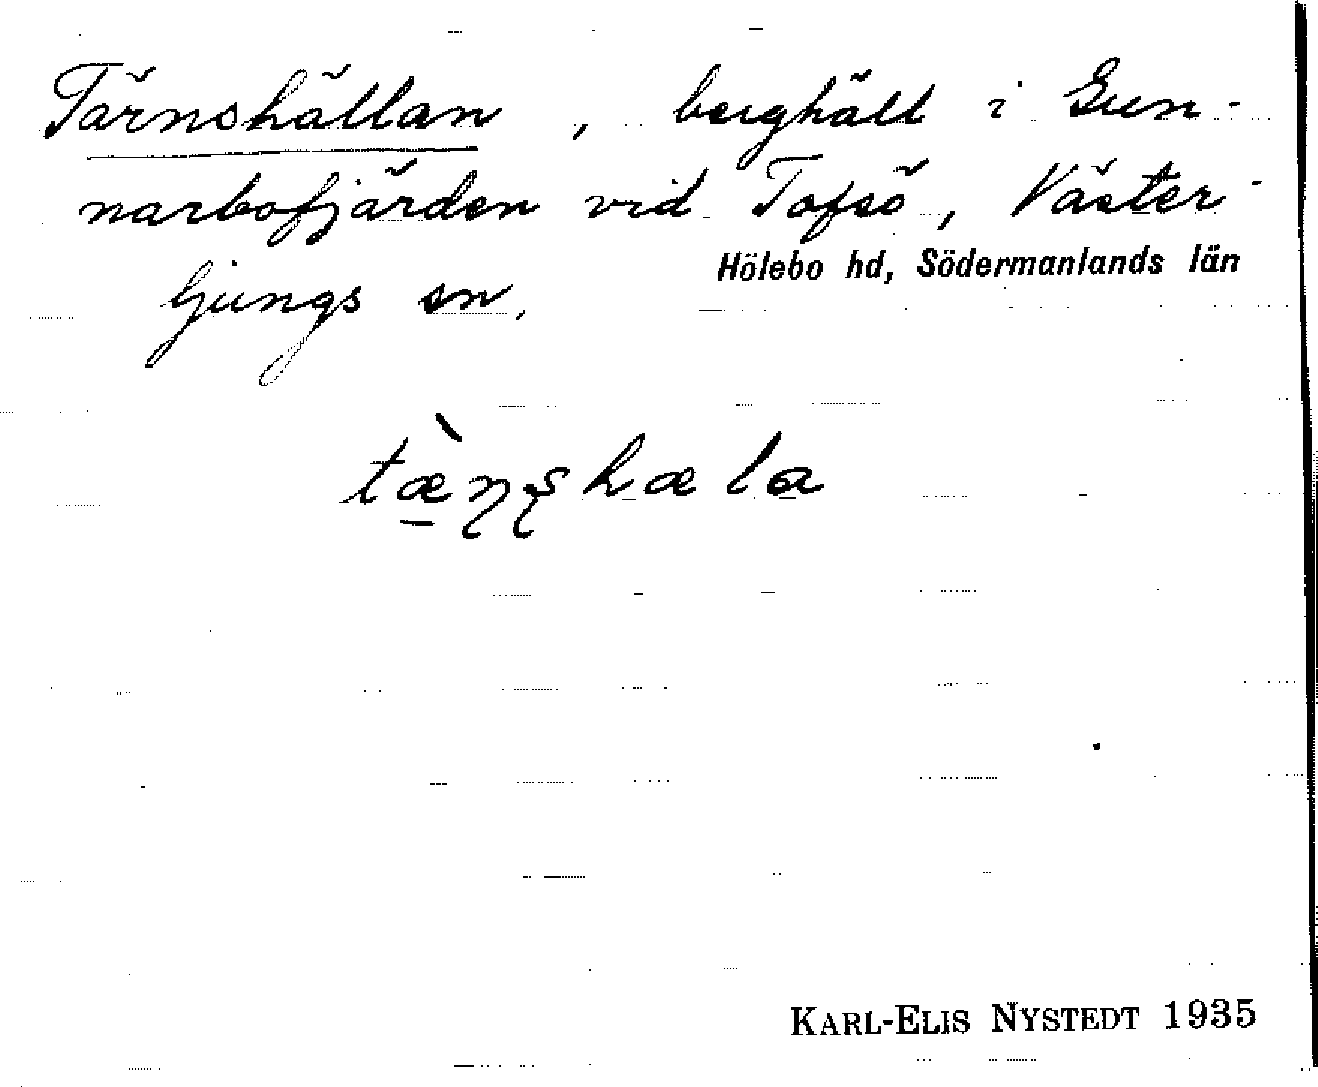 Tärnshällan, berghäll i Gun-
narbofjärden vid Tofsö, Väster-
ljungs sn.
Hölebo hd, Södermanlands län
tæ̠̀ɳʂhæla
KARL-ELIS NYSTEDT 1935